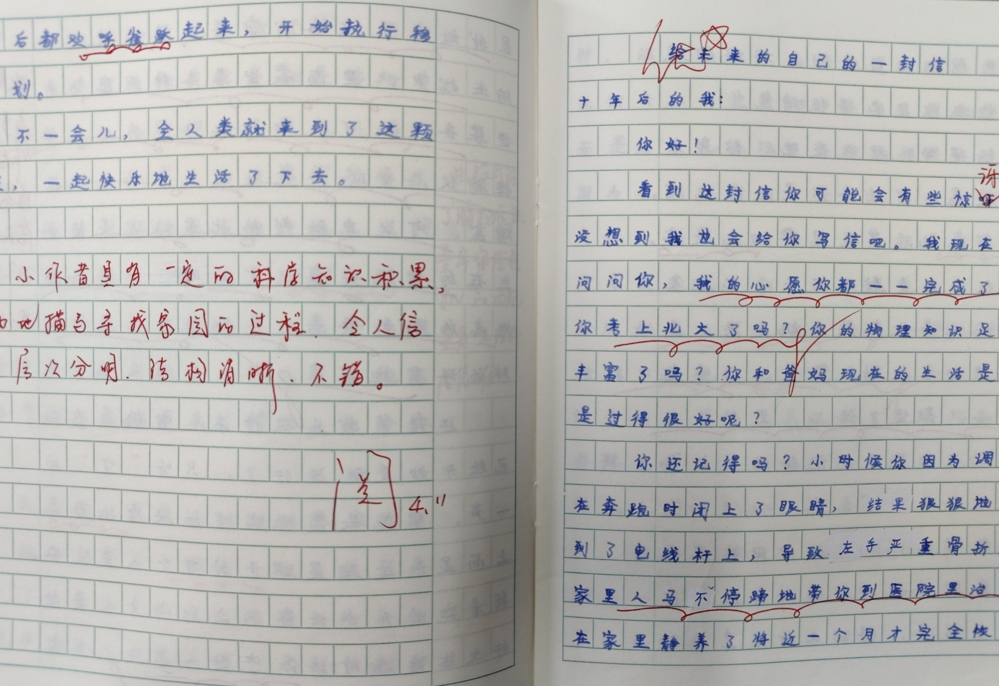 后都欢呼雀跃起来，开始执行移
划。
不一会儿，全人类就来到了这颗
，一起快乐地生活了下去。
小作者具有一定的科学知识积累，
地描写寻找家园的过程，令人信
层次分明，结构清晰，不错。
阅 4.11
给未来的自己的一封信
十年后的我：
你好！
看到这封信你可能会有些惊讶
没想到我也会给你写信吧。我现在
问问你，我的心愿你都一一完成了
你考上北大了吗？你的物理知识足
丰富了吗？你和爸妈现在的生活是
是过得很好呢？
你还记得吗？小时候你因为调
在奔跑时闭上了眼睛，结果狠狠地
到了电线杆上，导致左手严重骨折
家里人马不停蹄地带你到医院里治
在家里静养了将近一个月才完全恢